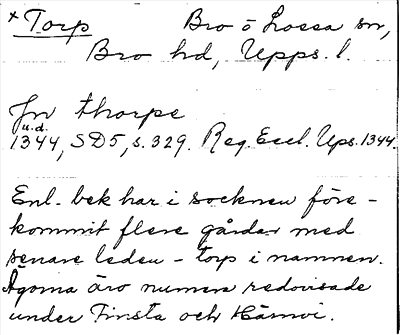 × Torp Bro o Lossa sn,
Bro hd, Upps. l.
Jn thorpe
u.d.
1344, SD5, s. 329. Reg. Eccl. Ups. 1344.
Enl. bek har i socknen före-
kommit flere gårdar med
senare leden - torp i namnen.
Ägorna äro numera redovisade
under Finsta och Härnevi.